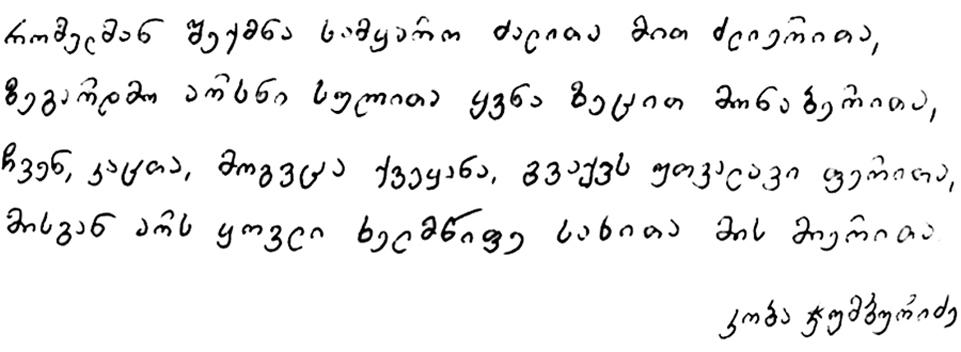 რომელმან შექმნა სამყარო ძალითა მით ძლიერითა,
ზეგარდმო არსნი სულითა ყვნა ზეცით მონაბერითა,
ჩვენ, კაცთა, მოგვცა ქვეყანა, გვაქვს უთვალავი ფერითა,
მისგან არს ყოვლი ხელმწიფე სახითა მის მიერითა
კობა ჯუმბურიძე